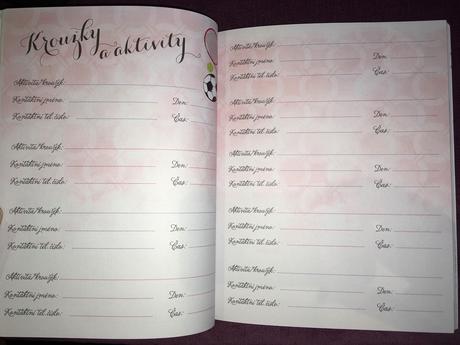 Kroužky
a aktivity
Aktivita/kroužek:
Kontaktní jméno: Den:
Kontaktní tel. číslo: Čas:
Aktivita/kroužek:
Kontaktní jméno: Den:
Kontaktní tel. číslo: Čas:
Aktivita/kroužek:
Kontaktní jméno: Den:
Kontaktní tel. číslo: Čas:
Aktivita/kroužek:
Kontaktní jméno: Den:
Kontaktní tel. číslo: Čas:
Aktivita/kroužek:
Kontaktní jméno: Den:
Kontaktní tel. číslo: Čas:
Aktivita/kroužek:
Kontaktní jméno: Den:
Kontaktní tel. číslo: Čas:
Aktivita/kroužek:
Kontaktní jméno: Den:
Kontaktní tel. číslo: Čas:
Aktivita/kroužek:
Kontaktní jméno: Den:
Kontaktní tel. číslo: Čas:
Aktivita/kroužek:
Kontaktní jméno: Den:
Kontaktní tel. číslo: Čas: